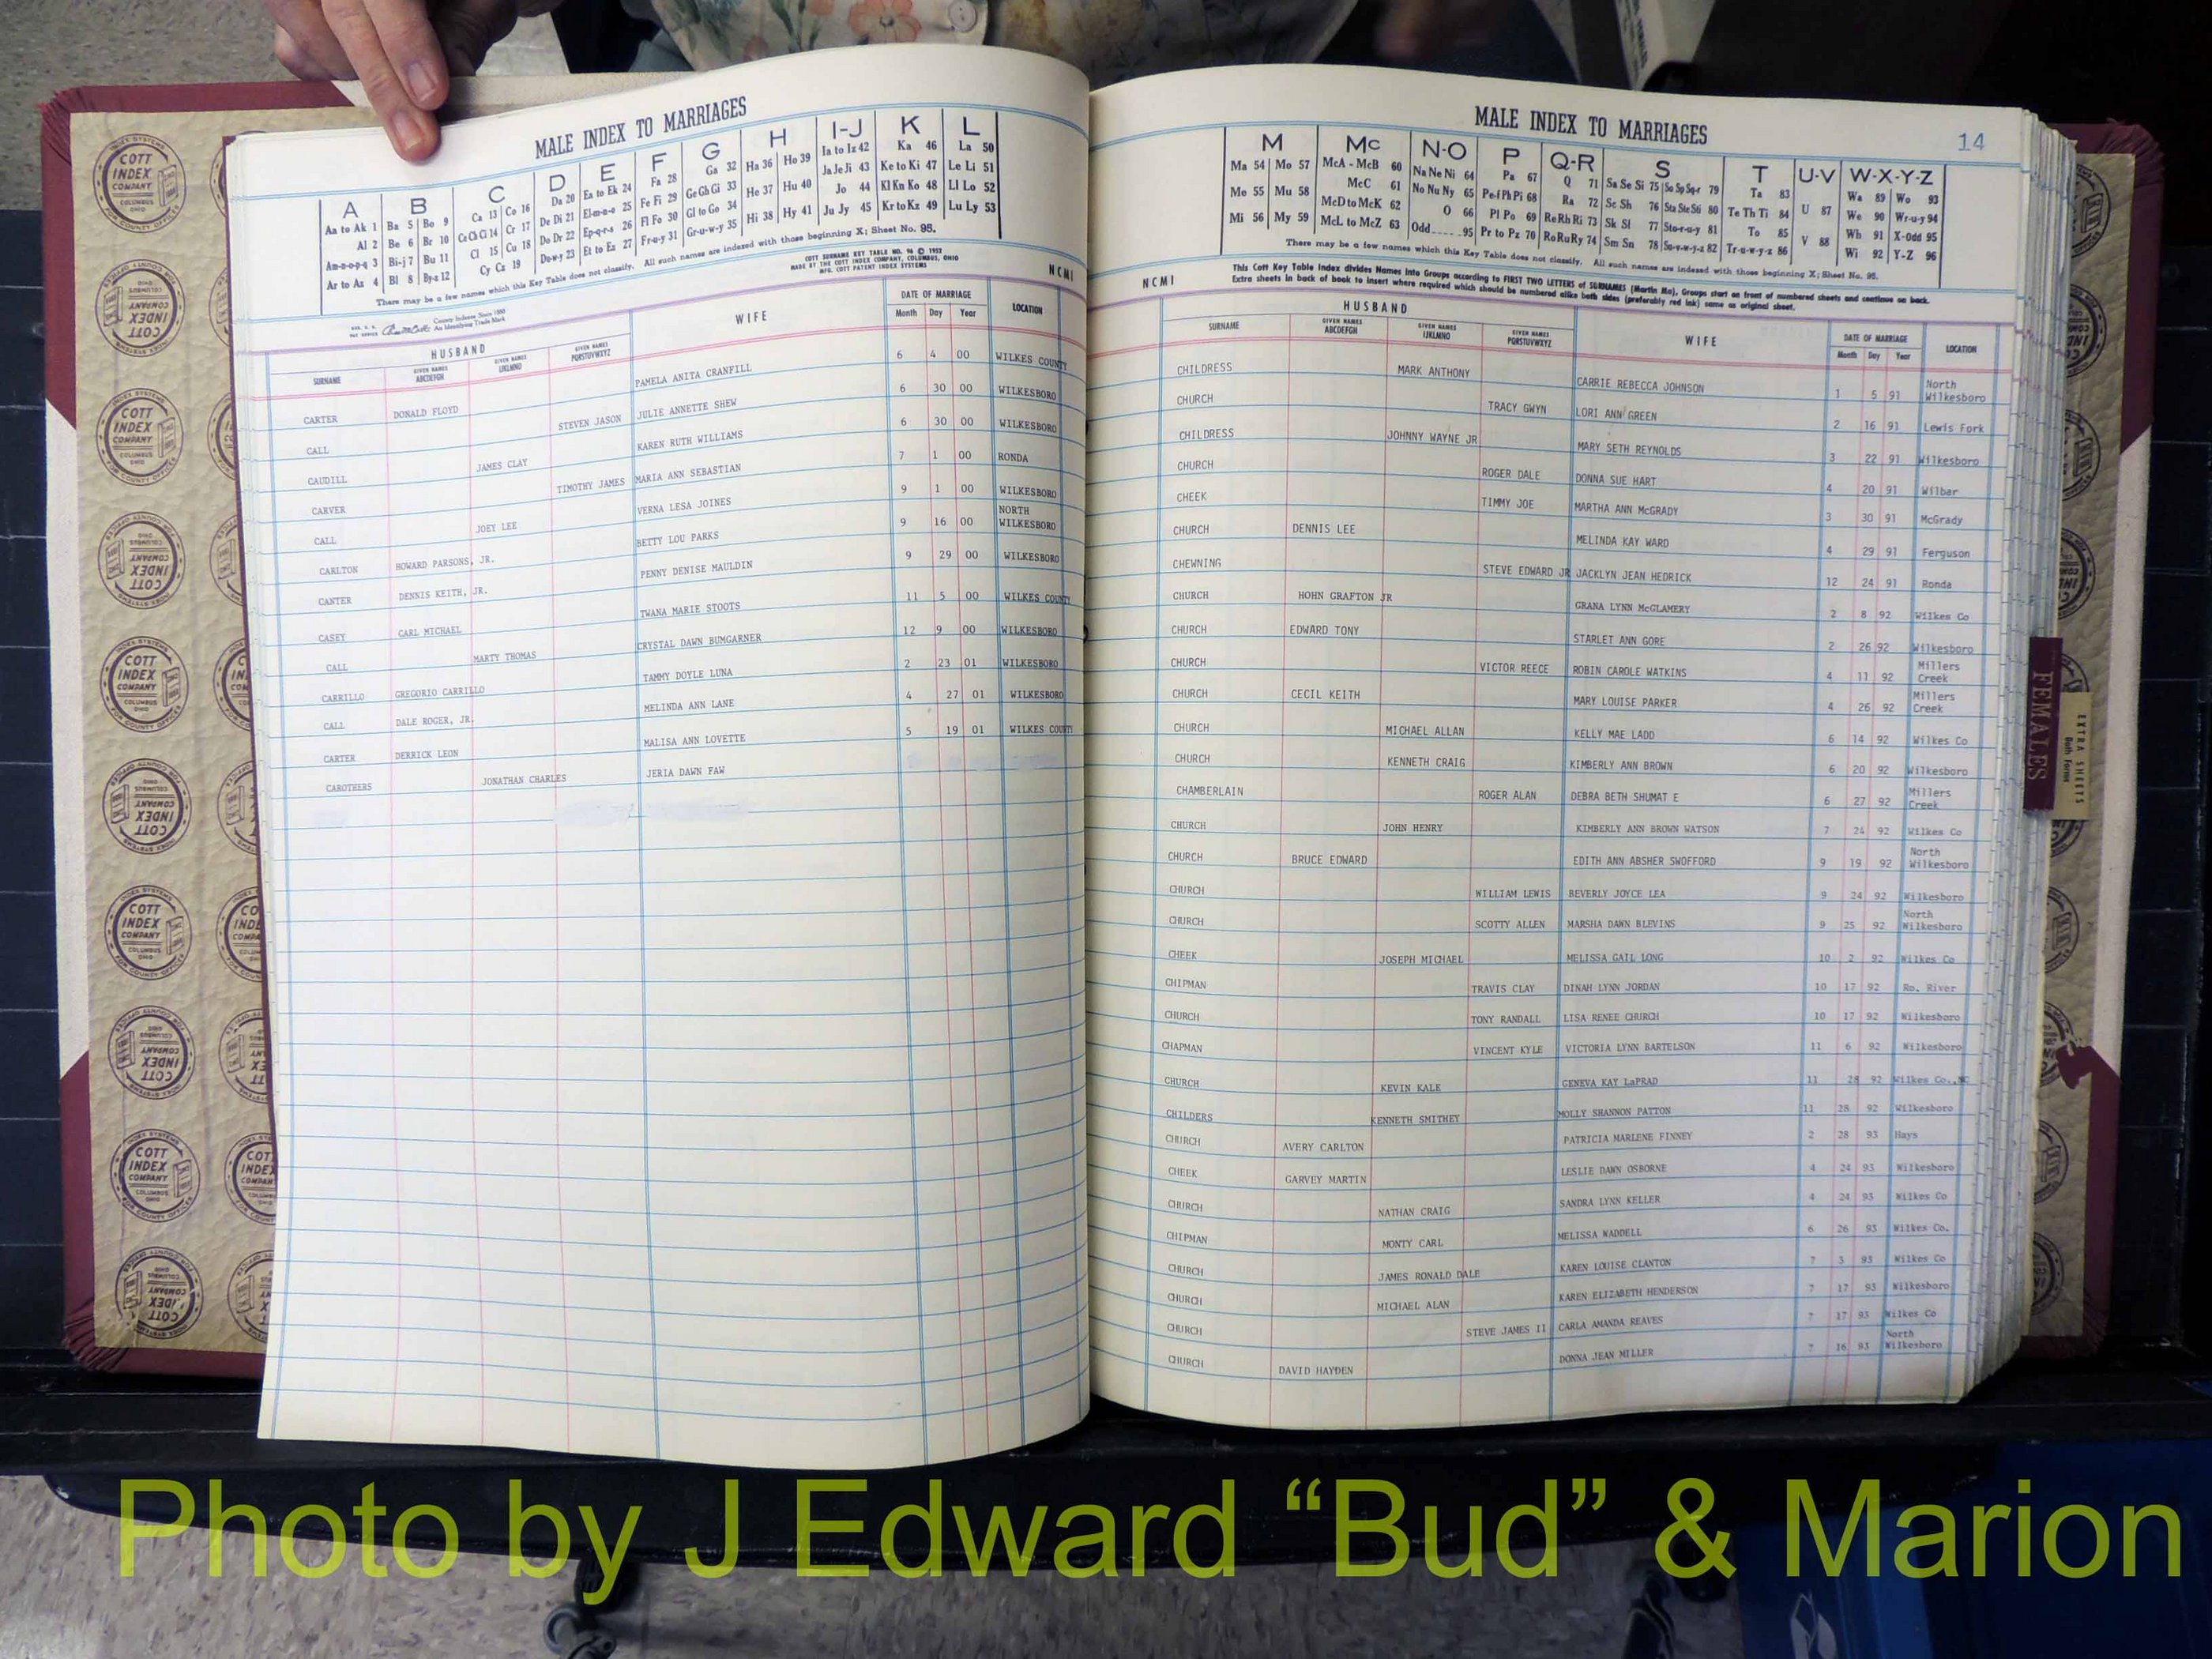 MALE INDEX TO MARRIAGES
A B C D E F G H I-J K L
Aa to Ak 1 Ba 5 Bo 9 Ca 13 Co 16 Da 20 Ea to Ek 24 Fa 28 Ga 32 Ha 36 Ho 39 Ia to Iz 42 Ka 46 La 50
Al 2 Be 6 Br 10 Ce Ch Ci 14 Cr 17 De Di 21 El-m-n-o 25 Fe Fi 29 Ge Gh Gi 33 He 37 Hu 40 Ja Je Ji 43 Ke to Ki 47 Le Li 51
Am-n-o-p-q 3 Bi-j 7 Bu 11 Cl 15 Cu 18 Do Dr 22 Ep-q-r-s 26 Fl Fo 30 Gl to Go 34 Hi 38 Hy 41 Jo 44 Kl Kn Ko 48 Ll Lo 52
Ar to Az 4 Bl 8 By-z 12 Cy Cz 19 Du-w-y 23 Et to Ez 27 Fr-u-y 31 Gr-u-w-y 35 Ju Jy 45 Kr to Kz 49 Lu Ly 53
There may be a few names which this Key Table does not classify. All such names are indexed with those beginning X; Sheet No. 95.
COTT SURNAME KEY TABLE NO. 96 © 1952
MADE BY THE COTT INDEX COMPANY, COLUMBUS, OHIO
MFG. COTT PATENT INDEX SYSTEMS
NCMI
County Indexes Since 1880
An Identifying Trade Mark
HUSBAND WIFE DATE OF MARRIAGE LOCATION
SURNAME GIVEN NAMES ABCDEFGH GIVEN NAMES IJKLMNO GIVEN NAMES PQRSTUVWXYZ Month Day Year
CARTER DONALD FLOYD PAMELA ANITA CRANFILL 6 4 00 WILKES COUNTY
CALL STEVEN JASON JULIE ANNETTE SHEW 6 30 00 WILKESBORO
CAUDILL JAMES CLAY KAREN RUTH WILLIAMS 6 30 00 WILKESBORO
CARVER TIMOTHY JAMES MARIA ANN SEBASTIAN 7 1 00 RONDA
CALL JOEY LEE VERNA LESA JOINES 9 1 00 WILKESBORO
CARLTON HOWARD PARSONS, JR. BETTY LOU PARKS 9 16 00 NORTH WILKESBORO
CANTER DENNIS KEITH, JR. PENNY DENISE MAULDIN 9 29 00 WILKESBORO
CASEY CARL MICHAEL TWANA MARIE STOOTS 11 5 00 WILKES COUNTY
CALL MARTY THOMAS CRYSTAL DAWN BUMGARNER 12 9 00 WILKESBORO
CARRILLO GREGORIO CARRILLO TAMMY DOYLE LUNA 2 23 01 WILKESBORO
CALL DALE ROGER, JR. MELINDA ANN LANE 4 27 01 WILKESBORO
CARTER DERRICK LEON MALISA ANN LOVETTE 5 19 01 WILKES COUNTY
CAROTHERS JONATHAN CHARLES JERIA DAWN FAW
MALE INDEX TO MARRIAGES
14
M Mc N-O P Q-R S T U-V W-X-Y-Z
Ma 54 Mo 57 McA - McB 60 Na Ne Ni 64 Pa 67 Q 71 Sa Se Si 75 So Sp Sq-r 79 Ta 83 U 87 Wa 89 Wo 93
Me 55 Mu 58 McC 61 No Nu Ny 65 Pe-f Ph Pi 68 Ra 72 Sc Sh 76 Sta Ste S6 80 Te Th Ti 84 V 88 We 90 Wr-u-y 94
Mi 56 My 59 McD to McK 62 O 66 Pl Po 69 Re Rh Ri 73 Sk Sl 77 Sto-r-u-y 81 To 85 Wh 91 X-Odd 95
McL to McZ 63 Odd 95 Pr to Pz 70 Ro Ru Ry 74 Sm Sn 78 Su-v-w-y-z 82 Tr-u-w-y-z 86 Wi 92 Y-Z 96
There may be a few names which this Key Table does not classify. All such names are indexed with those beginning X; Sheet No. 95.
NCMI
This Cott Key Table Index divides Names into Groups according to FIRST TWO LETTERS of SURNAMES (Martin Ma), Groups start on front of numbered sheets and continue on back.
Extra sheets in back of book to insert where required which should be numbered alike both sides (preferably red ink) same as original sheet.
HUSBAND WIFE DATE OF MARRIAGE LOCATION
SURNAME GIVEN NAMES ABCDEFGH GIVEN NAMES IJKLMNO GIVEN NAMES PQRSTUVWXYZ Month Day Year
CHILDRESS MARK ANTHONY CARRIE REBECCA JOHNSON 1 5 91 North Wilkesboro
CHURCH TRACY GWYN LORI ANN GREEN 2 16 91 Lewis Fork
CHILDRESS JOHNNY WAYNE JR MARY SETH REYNOLDS 3 22 91 Wilkesboro
CHURCH ROGER DALE DONNA SUE HART 4 20 91 Wilbar
CHEEK TIMMY JOE MARTHA ANN McGRADY 3 30 91 McGrady
CHURCH DENNIS LEE MELINDA KAY WARD 4 29 91 Ferguson
CHEWNING STEVE EDWARD JR JACKLYN JEAN HEDRICK 12 24 91 Ronda
CHURCH HOHN GRAFTON JR GRANA LYNN McGLAMERY 2 8 92 Wilkes Co
CHURCH EDWARD TONY STARLET ANN GORE 2 26 92 Wilkesboro
CHURCH VICTOR REECE ROBIN CAROLE WATKINS 4 11 92 Millers Creek
CHURCH CECIL KEITH MARY LOUISE PARKER 4 26 92 Millers Creek
CHURCH MICHAEL ALLAN KELLY MAE LADD 6 14 92 Wilkes Co
CHURCH KENNETH CRAIG KIMBERLY ANN BROWN 6 20 92 Wilkesboro
CHAMBERLAIN ROGER ALAN DEBRA BETH SHUMAT E 6 27 92 Millers Creek
CHURCH JOHN HENRY KIMBERLY ANN BROWN WATSON 7 24 92 Wilkes Co
CHURCH BRUCE EDWARD EDITH ANN ABSHER SWOFFORD 9 19 92 North Wilkesboro
CHURCH WILLIAM LEWIS BEVERLY JOYCE LEA 9 24 92 Wilkesboro
CHURCH SCOTTY ALLEN MARSHA DAWN BLEVINS 9 25 92 North Wilkesboro
CHEEK JOSEPH MICHAEL MELISSA GAIL LONG 10 2 92 Wilkes Co
CHIPMAN TRAVIS CLAY DINAH LYNN JORDAN 10 17 92 Ro. River
CHURCH TONY RANDALL LISA RENEE CHURCH 10 17 92 Wilkesboro
CHAPMAN VINCENT KYLE VICTORIA LYNN BARTELSON 11 6 92 Wilkesboro
CHURCH KEVIN KALE GENEVA KAY LaPRAD 11 28 92 Wilkes Co., NC
CHILDERS KENNETH SMITHEY MOLLY SHANNON PATTON 11 28 92 Wilkesboro
CHURCH AVERY CARLTON PATRICIA MARLENE FINNEY 2 28 93 Hays
CHEEK GARVEY MARTIN LESLIE DAWN OSBORNE 4 24 93 Wilkesboro
CHURCH NATHAN CRAIG SANDRA LYNN KELLER 4 24 93 Wilkes Co
CHIPMAN MONTY CARL MELISSA WADDELL 6 26 93 Wilkes Co.
CHURCH JAMES RONALD DALE KAREN LOUISE CLANTON 7 3 93 Wilkes Co
CHURCH MICHAEL ALAN KAREN ELIZABETH HENDERSON 7 17 93 Wilkesboro
CHURCH STEVE JAMES II CARLA AMANDA REAVES 7 17 93 Wilkes Co
CHURCH DAVID HAYDEN DONNA JEAN MILLER 7 16 93 North Wilkesboro
FEMALES
EXTRA SHEETS
Both Forms
COTT INDEX COMPANY
COLUMBUS OHIO
Photo by J Edward “Bud” & Marion